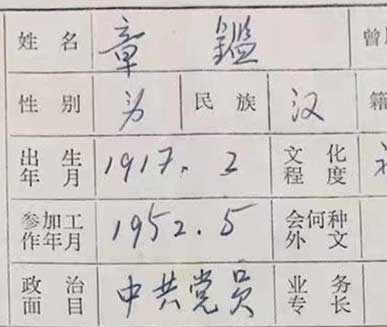 姓名 章鑑
性别 男 民族 汉
出生年月 1917.2 文化程度
参加工作年月 1952.5 会何种外文
政治面目 中共党员 业务专长